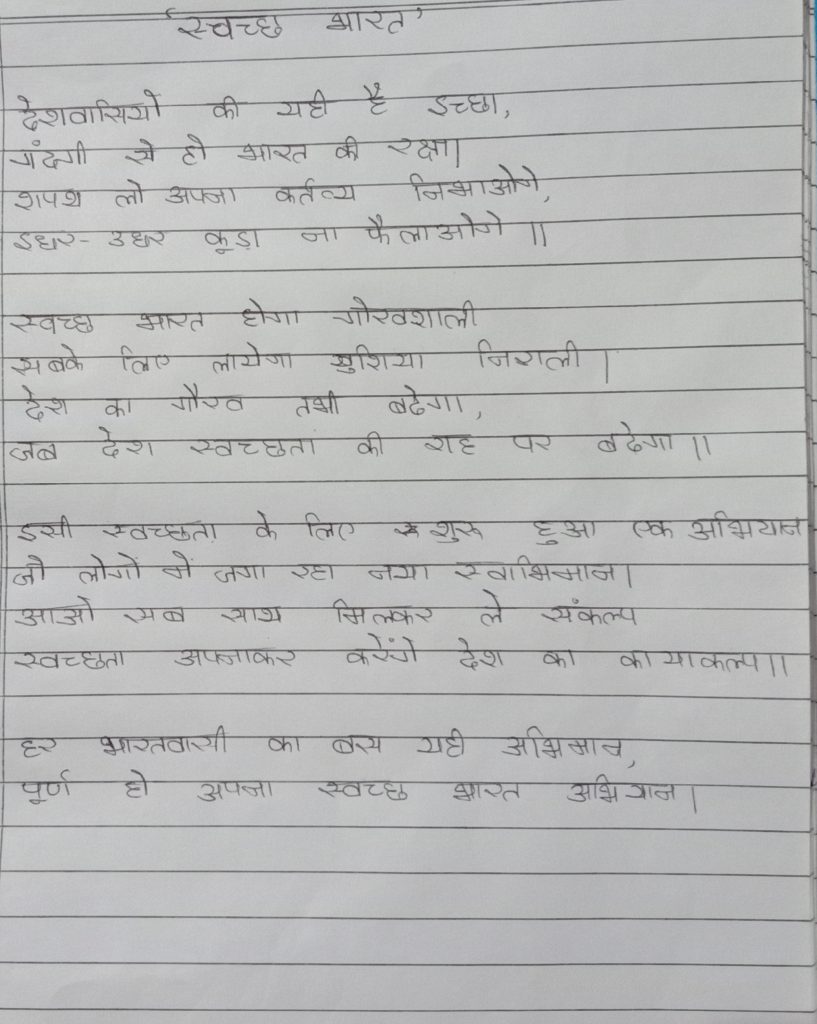 'स्वच्छ भारत'
देशवासियों की यही है इच्छा,
गंदगी से हो भारत की रक्षा।
शपथ लो अपना कर्तव्य निभाओगे,
इधर-उधर कूड़ा ना फैलाओगे॥
स्वच्छ भारत होगा गोरवशाली
सबके लिए लायेगा खुशिया निराली।
देश का गौरव तभी बढेगा,
जब देश स्वच्छता की राह पर बढेगा॥
इसी स्वच्छता के लिए शुरू हुआ एक अभियान
जो लोगों में जगा रहा नया स्वाभिमान।
आओ सब साथ मिलकर ले संकल्प
स्वच्छता अपनाकर करेंगे देश का कायाकल्प॥
हर भारतवासी का बस यही अभिमान,
पूर्ण हो अपना स्वच्छ भारत अभियान।